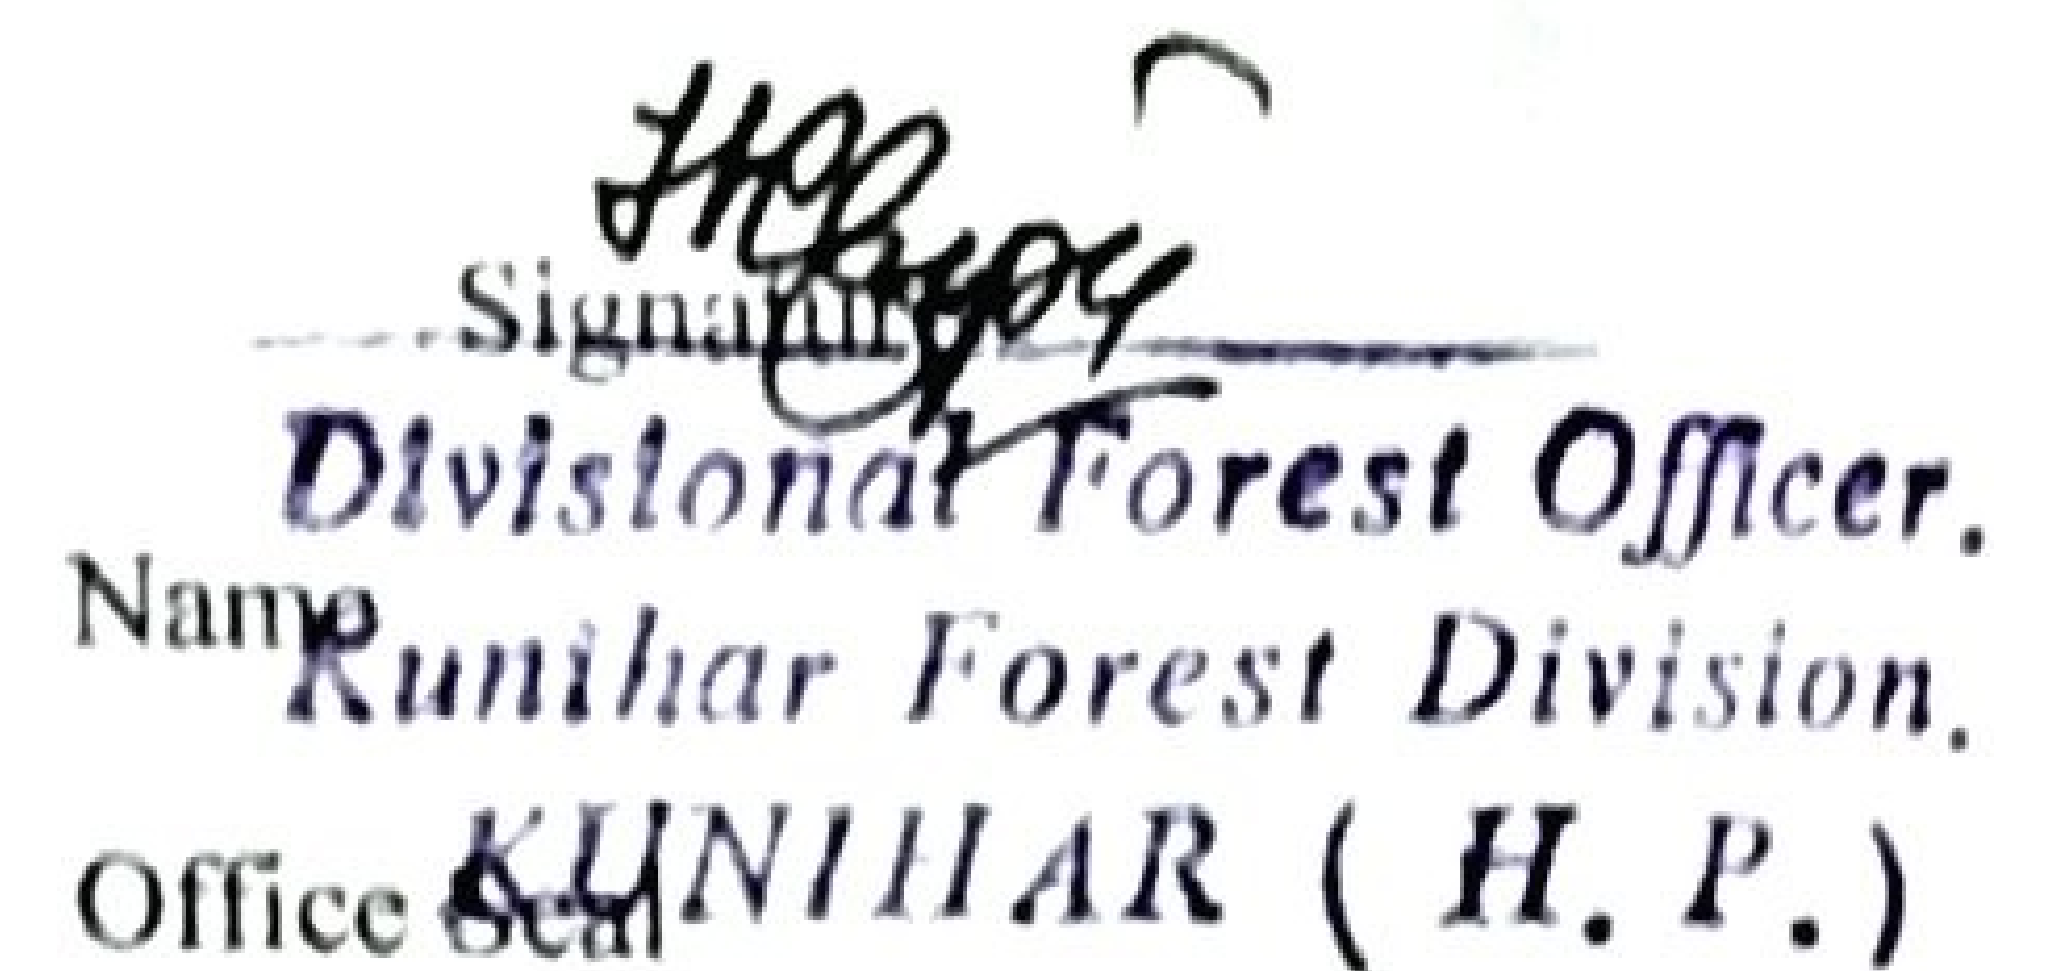 Signature
Divisional Forest Officer.
Name
Kunihar Forest Division.
Office Seal
KUNIHAR ( H. P. )